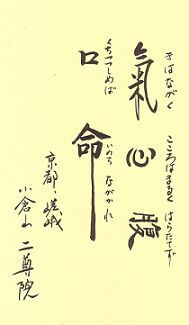 きはながく　こころはまるく　はらたてず
氣　心　腹
くちつつしめば　いのち　ながかれ
口　命
京都・嵯峨
小倉山　二尊院